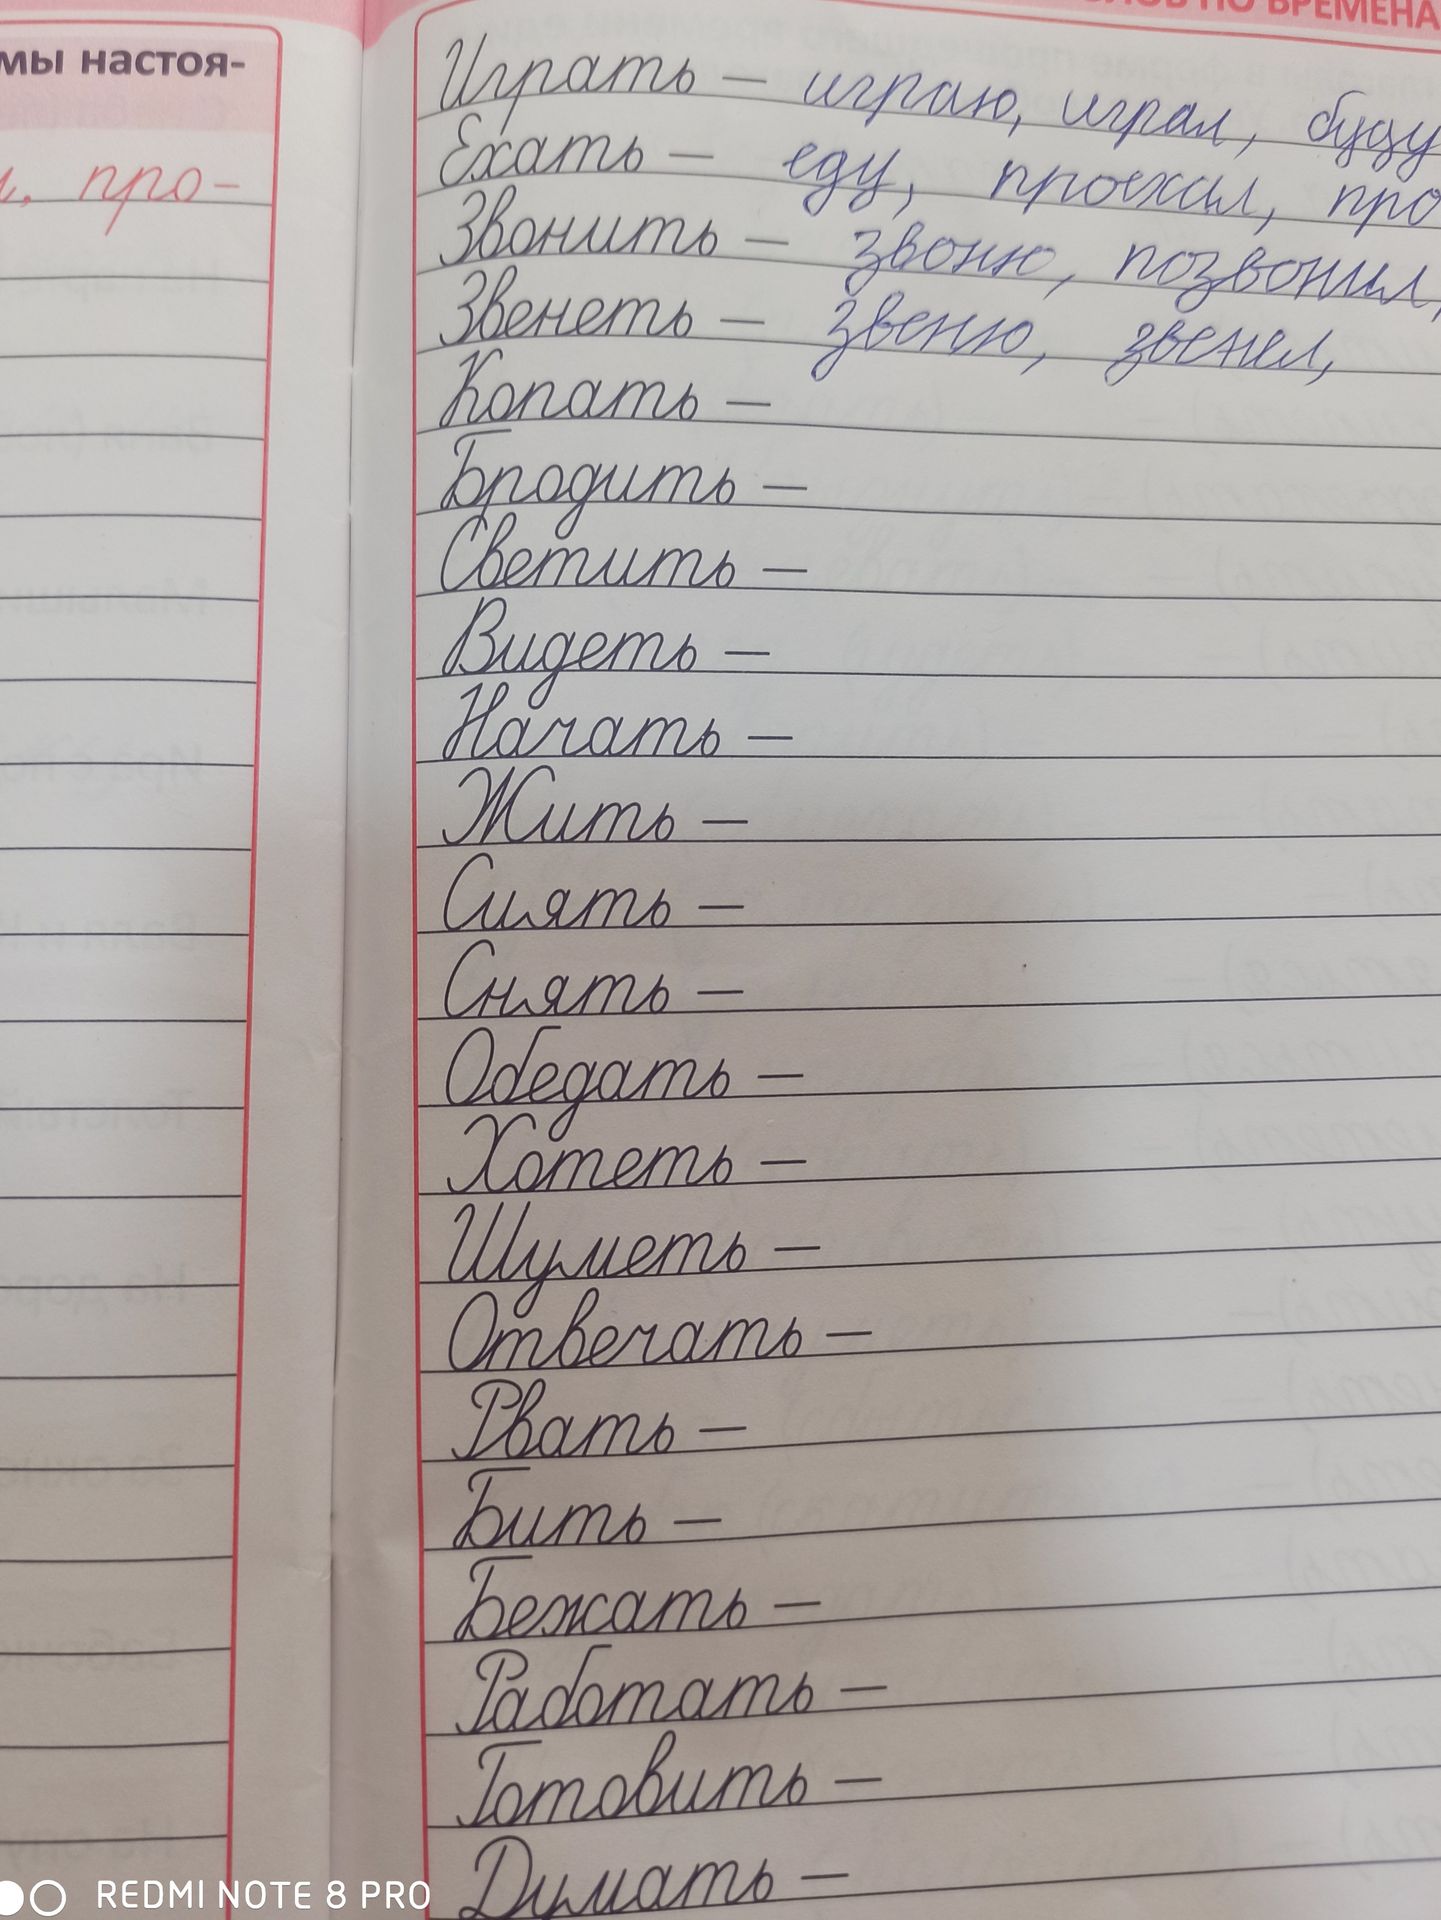 мы настоя-
про-
ПО ВРЕМЕНА
Играть – играю, играл, буду
Ехать – еду, проехал, про
Звонить – звоню, позвонил,
Звенеть – звеню, звенел,
Копать –
Бродить –
Светить –
Видеть –
Начать –
Жить –
Сиять –
Снять –
Обедать –
Хотеть –
Шуметь –
Отвечать –
Рвать –
Бить –
Бежать –
Работать –
Готовить –
Думать –
REDMI NOTE 8 PRO